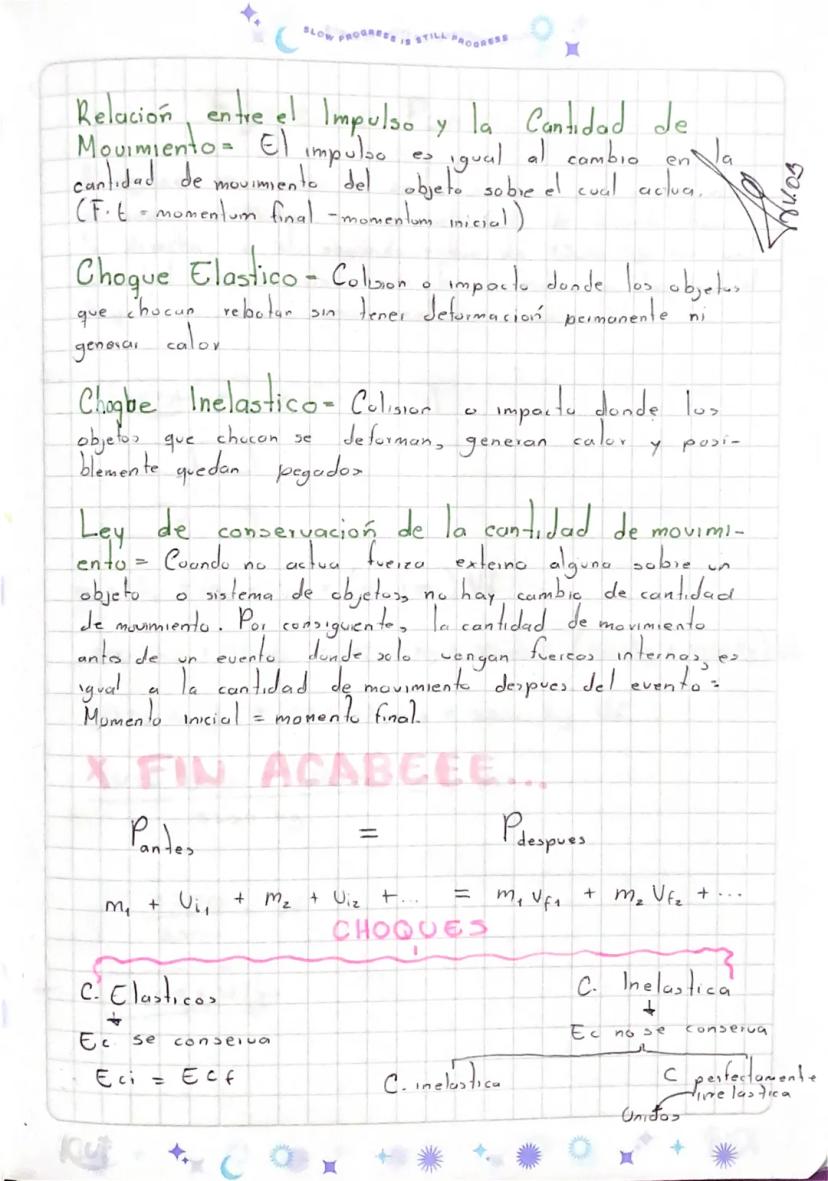 SLOW PROGRESS IS STILL PROGRESS
Relación entre el Impulso y la Cantidad de
Movimiento= El impulso es igual al cambio en la
cantidad de movimiento del objeto sobre el cual actua.
(F·t = momentum final - momentum inicial)
Choque Elastico- Colision o impacto donde los objetos
que chocan rebotan sin tener deformación permanente ni
generar calor
Choqbe Inelastico- Colision o impacto donde los
objetos que chocan se deforman, generan calor y posi-
blemente quedan pegados
Ley de conservación de la cantidad de movimi-
ento = Cuando no actua fuerza externo alguna sobre un
objeto o sistema de objetos, no hay cambio de cantidad
de movimiento. Por consiguiente, la cantidad de movimiento
antes de un evento donde solo vengan fuercos internas, es
igual a la cantidad de movimiento despues del evento=
Momento inicial = momento final.
X FIN ACABEEE...
Pantes = Pdespues
m1 + Ui1 + m2 + Ui2 +... = m1 Vf1 + m2 Vf2 + ...
CHOQUES
C. Elasticos C. Inelastica
Ec se conserva Ec no se conserva
Eci = Ecf C. inelastica C perfectamente
inelastica
Unidos